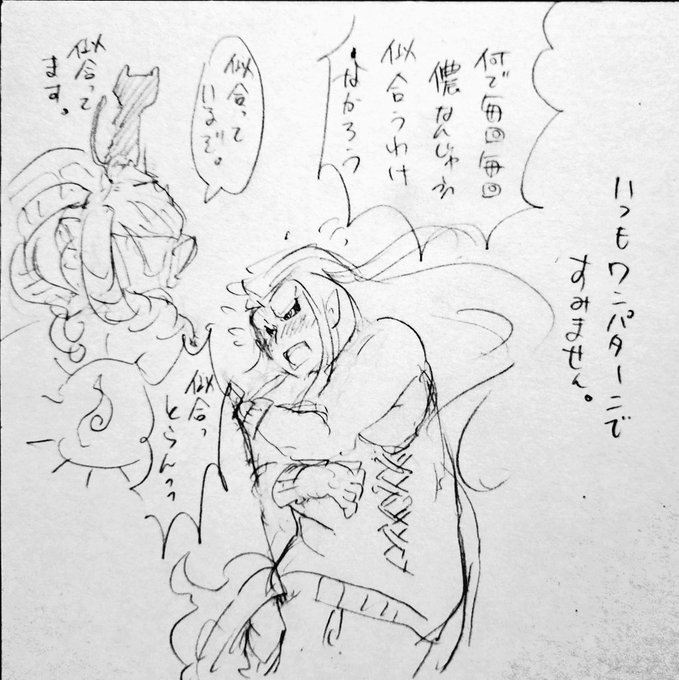 いつもワンパターンで
すみません。
何で毎回毎回
儂なんじゃあ
似合うわけ
なかろう
似合って
いるぞ。
似合って
ます。
似合っ
とらんっっ